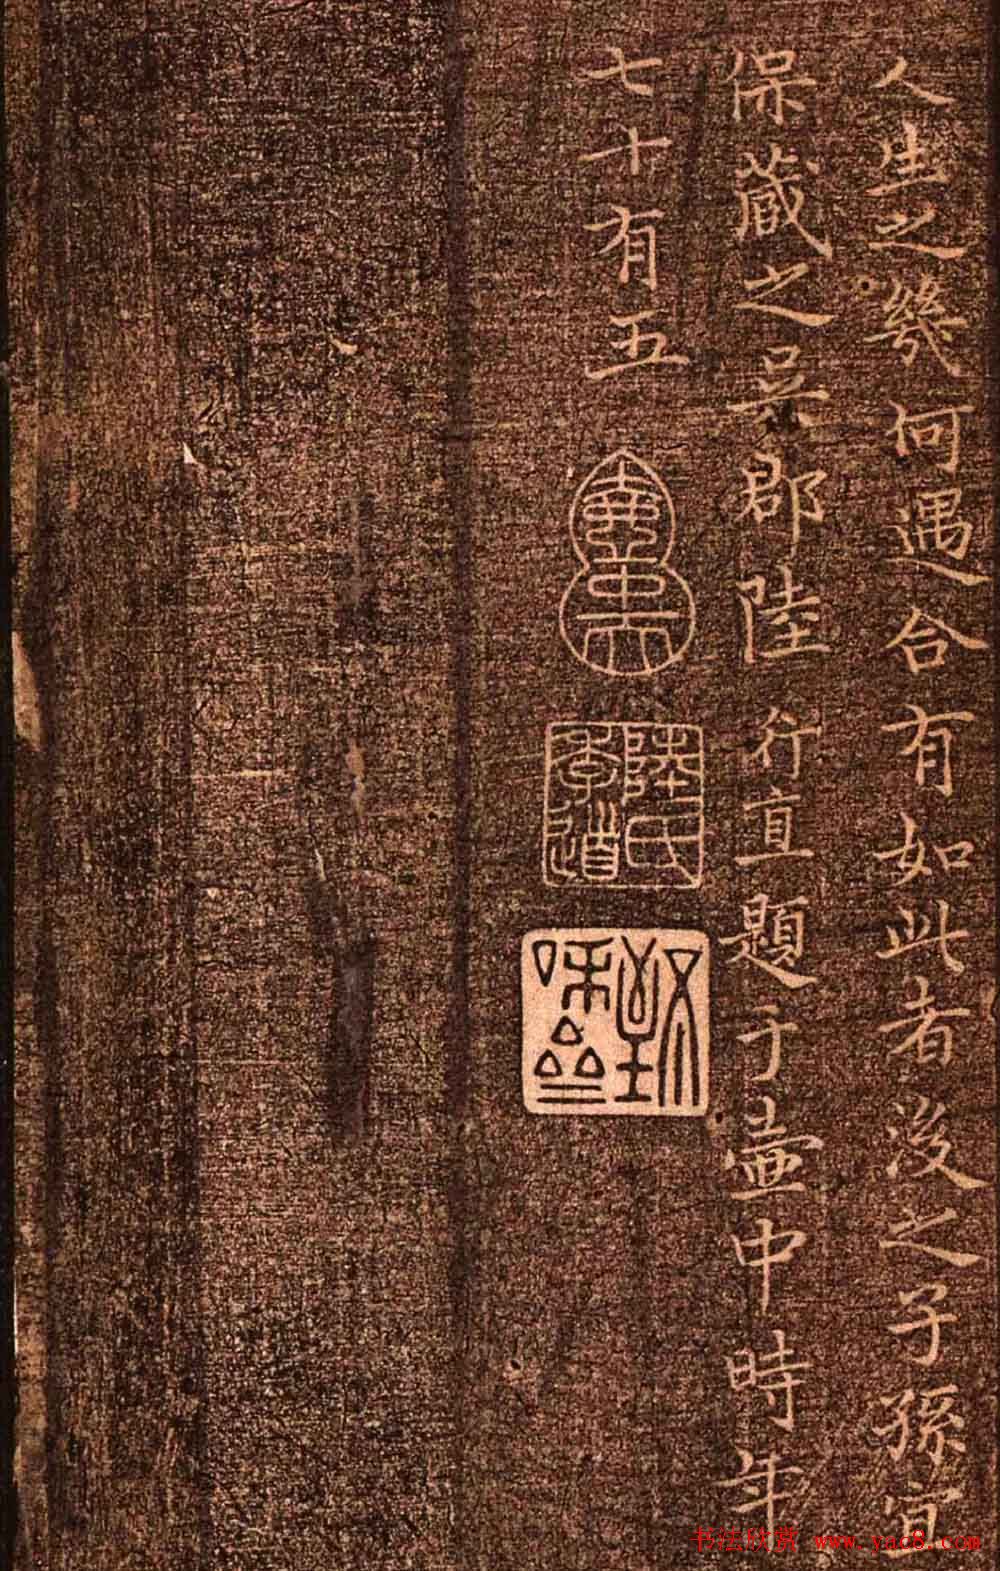 人生之幾何遇合有如此者後之子孫宜
保藏之吳郡陸行直題于壺中時年
七十有五
壺中天
陸氏季道
書法欣赏 www.yac8.com